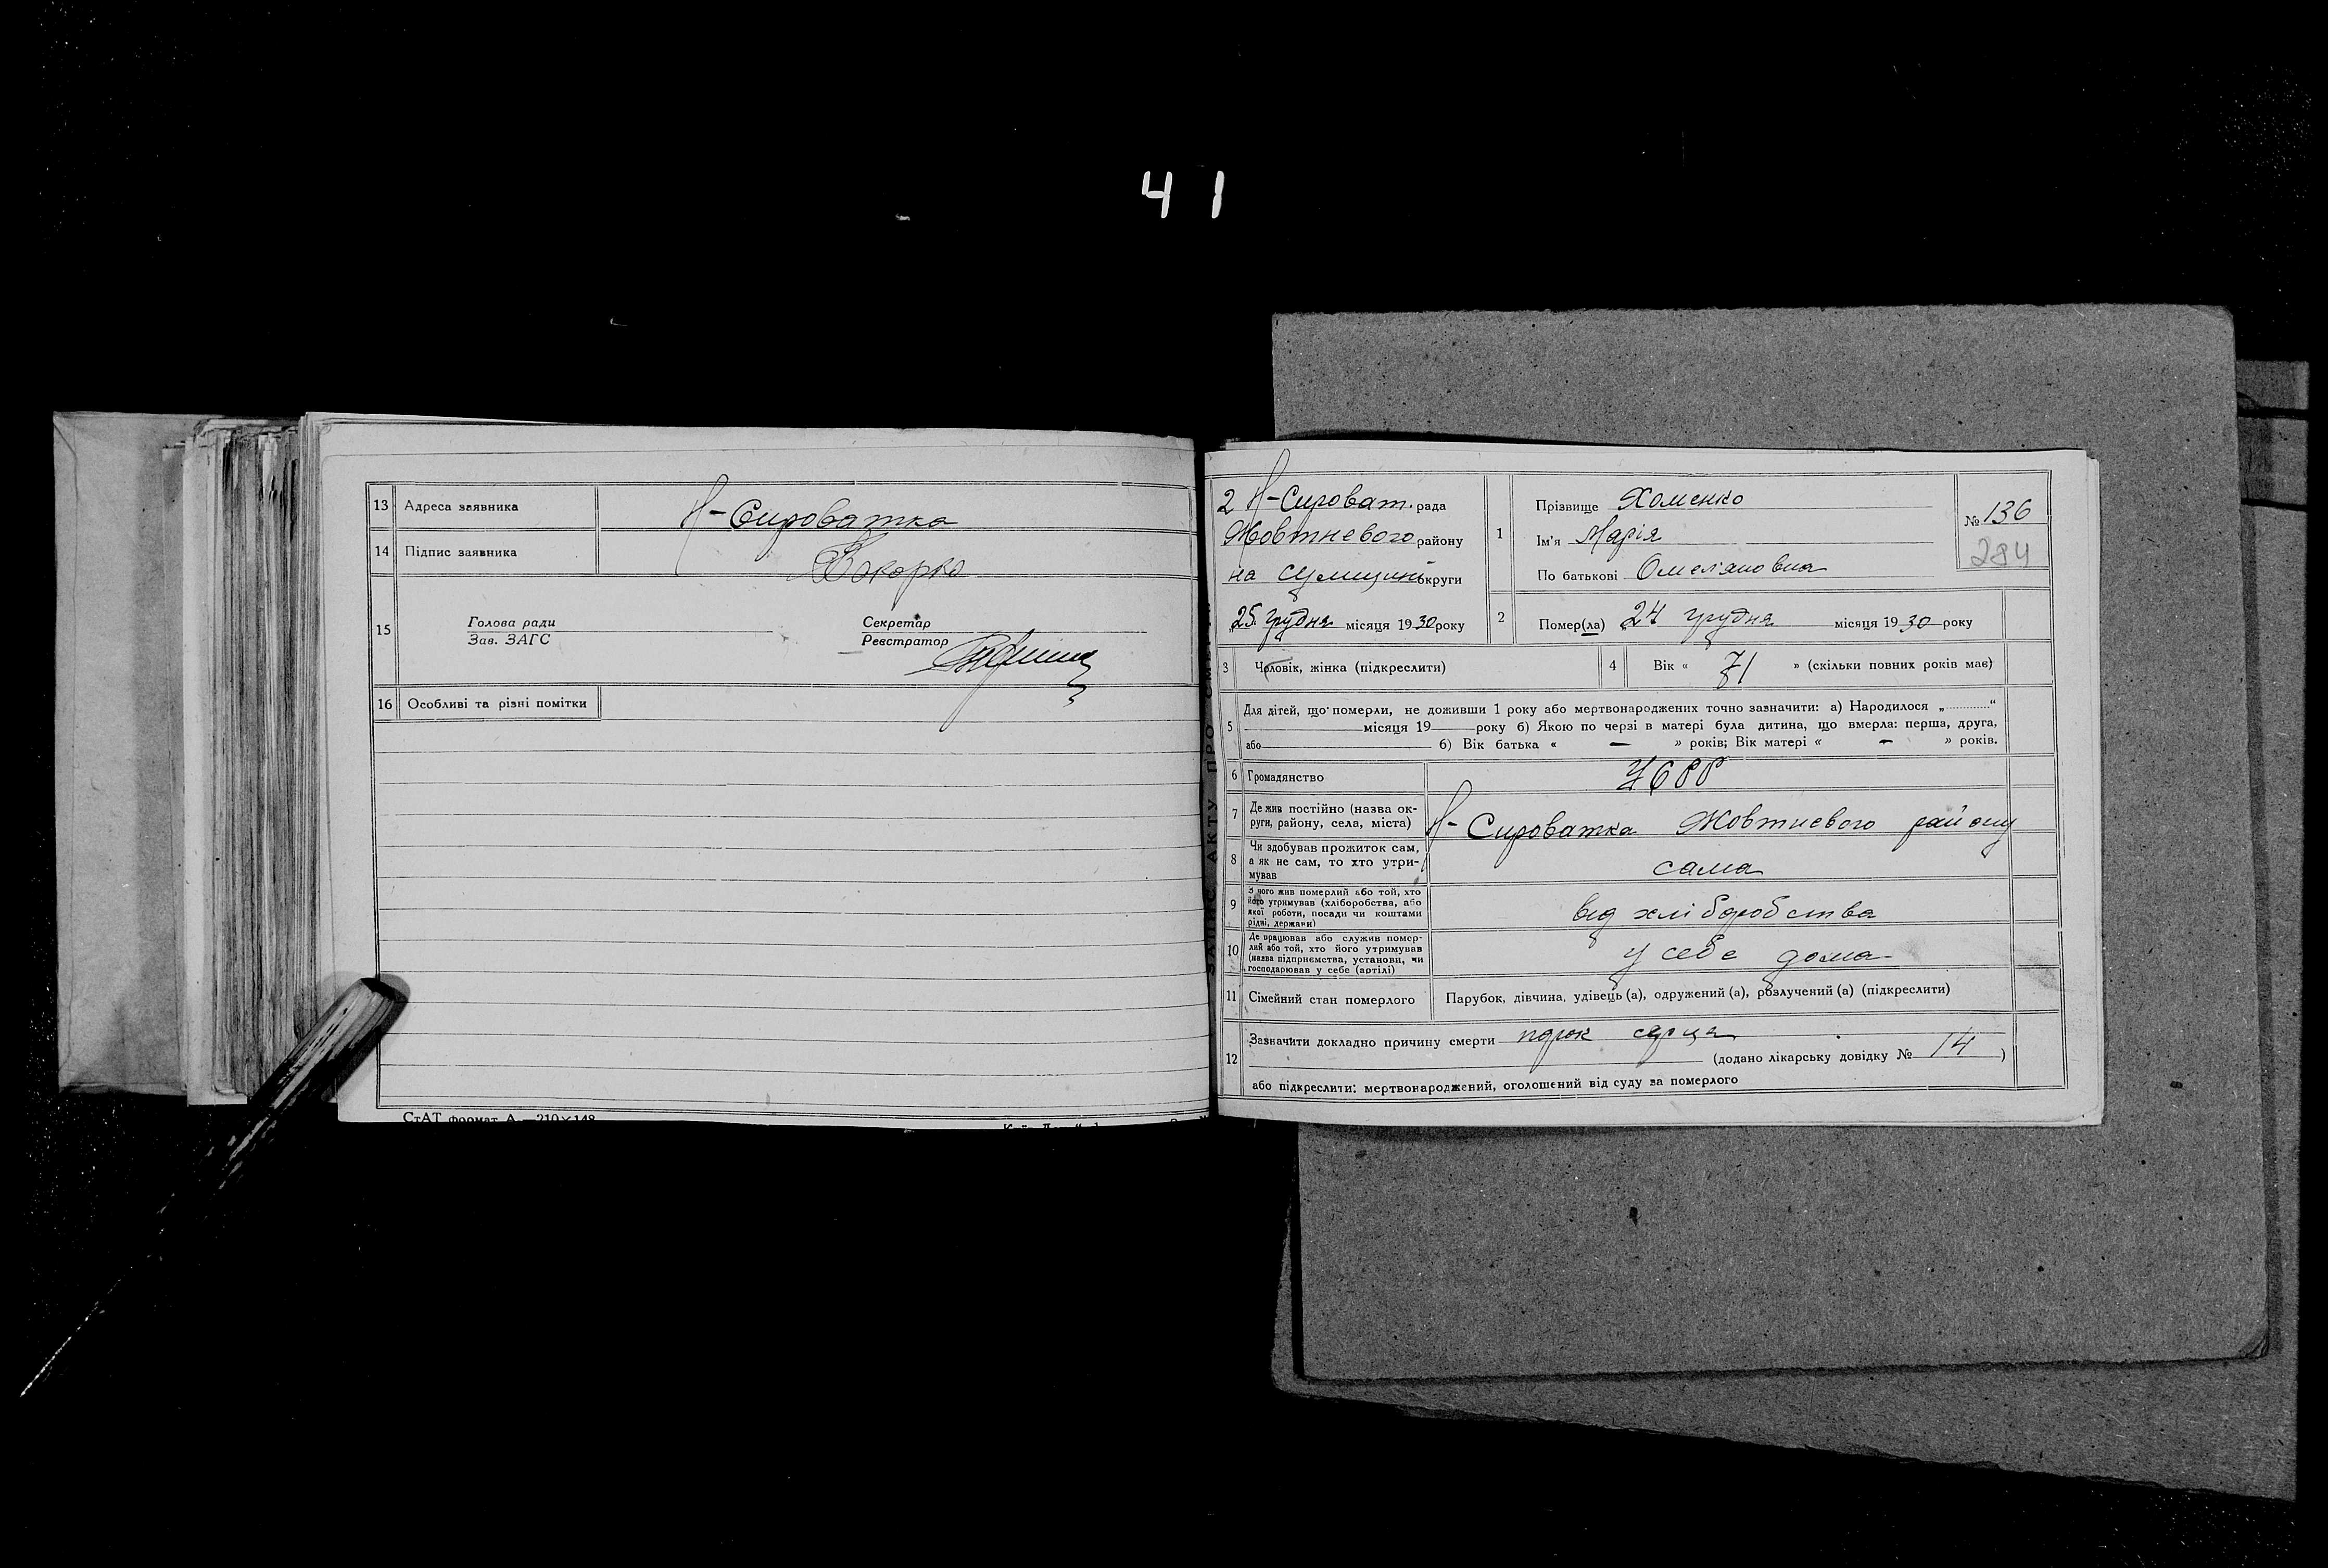 41
13 Адреса заявника Н-Сироватка
14 Підпис заявника
15 Голова ради Секретар
Зав. ЗАГС Реєстратор
16 Особливі та різні помітки
СтАТ формат А — 210×148
ЗАПИС АКТУ ПРО
2 Н-Сироват. рада
Жовтневого району
на Сумщині округи
„25 грудня місяця 1930 року
1 Прізвище Хоменко
Ім'я Марія
По батькові Омеляновна
№ 136
284
2 Помер(ла) „24 грудня місяця 1930 року
3 Чоловік, жінка (підкреслити)
4 Вік « 71 » (скільки повних років має)
5 Для дітей, що померли, не доживши 1 року або мертвонароджених точно зазначити: а) Народилося „............“
місяця 19 року б) Якою по черзі в матері була дитина, що вмерла: перша, друга,
або б) Вік батька « — » років; Вік матері « — » років.
6 Громадянство УСРР
7 Де жив постійно (назва ок-
руги, району, села, міста) Н-Сироватка Жовтневого району
8 Чи здобував прожиток сам,
а як не сам, то хто утри-
мував сама
9 З чого жив померлий або той, хто
його утримував (хліборобства, або
якої роботи, посади чи коштами
рідні, держави) від хліборобства
10 Де працював або служив помер-
лий або той, хто його утримував
(назва підприємства, установи, чи
господарював у себе (артілі) у себе дома
11 Сімейний стан померлого Парубок, дівчина, удівець (а), одружений (а), розлучений (а) (підкреслити)
12 Зазначити докладно причину смерти порок серца
(додано лікарську довідку № 14 )
або підкреслити: мертвонароджений, оголошений від суду за померлого